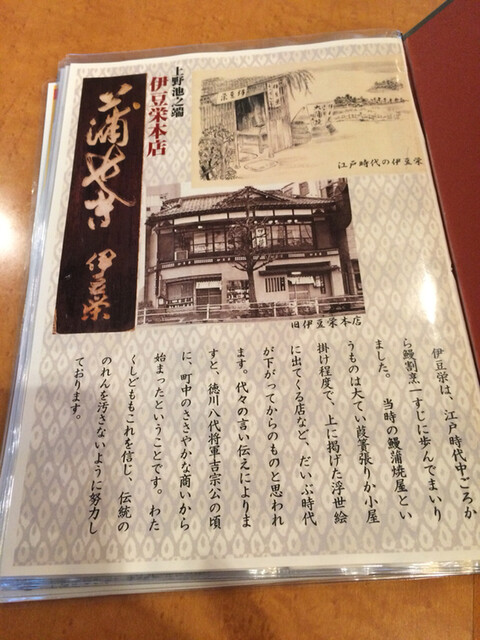 上野池之端
伊豆栄本店
蒲やき 伊豆栄
江戸時代の伊豆栄
旧伊豆栄本店
伊豆栄は、江戸時代中ごろか
ら鰻割烹一すじに歩んでまいり
ました。　当時の鰻蒲焼屋とい
うものは大てい葭簀張りか小屋
掛け程度で、上に掲げた浮世絵
に出てくる店など、だいぶ時代
が下がってからのものと思われ
ます。代々の言い伝えによりま
すと、徳川八代将軍吉宗公の頃
に、町中のささやかな商いから
始まったということです。わた
くしどももこれを信じ、伝統の
のれんを汚さないように努力し
ております。